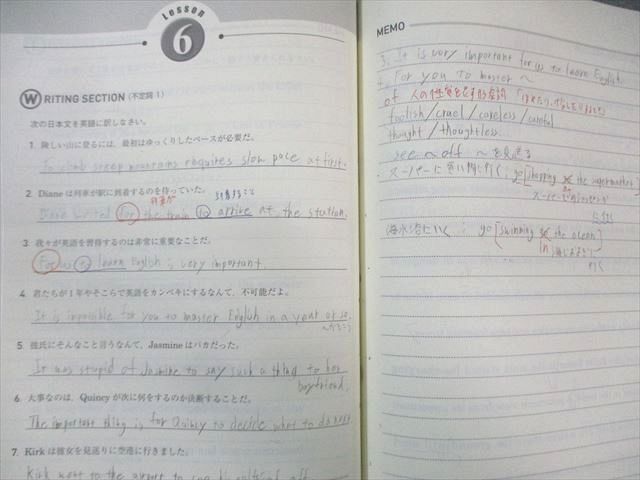 Lesson
6
WRITING SECTION (不定詞 1)
次の日本文を英語に訳しなさい。
1. 険しい山に登るには、最初はゆっくりしたペースが必要だ。
To climb steep mountains requires slow pace at first.
2. Dianeは列車が駅に到着するのを待っていた。
列車が 到着すること
Diane waited for the train to arrive at the station.
3. 我々が英語を習得するのは非常に重要なことだ。
For us to learn English is very important.
4. 君たちが1年やそこらで英語をカンペキにするなんて、不可能だよ。
It is impossible for you to master English in a year or so.
5. 彼氏にそんなこと言うなんて、Jasmineはバカだった。
It was stupid of Jasmine to say such a thing to her
boyfriend.
6. 大事なのは、Quincyが次に何をするのか決断することだ。
The important thing is for Quincy to decide what to do next.
7. Kirkは彼女を見送りに空港に行きました。
Kirk went to the airport to see his girlfriend off.
MEMO
3. It is very important for us to learn English
4. For you to master ~
of 人の性質を表す形容詞
foolish / cruel / careless / careful
thought / thoughtless.
see ~ off ~を見送る
スーパーに買い物に行く : go [shopping at the supermarket
海水浴に行く : go [swimming in the ocean]